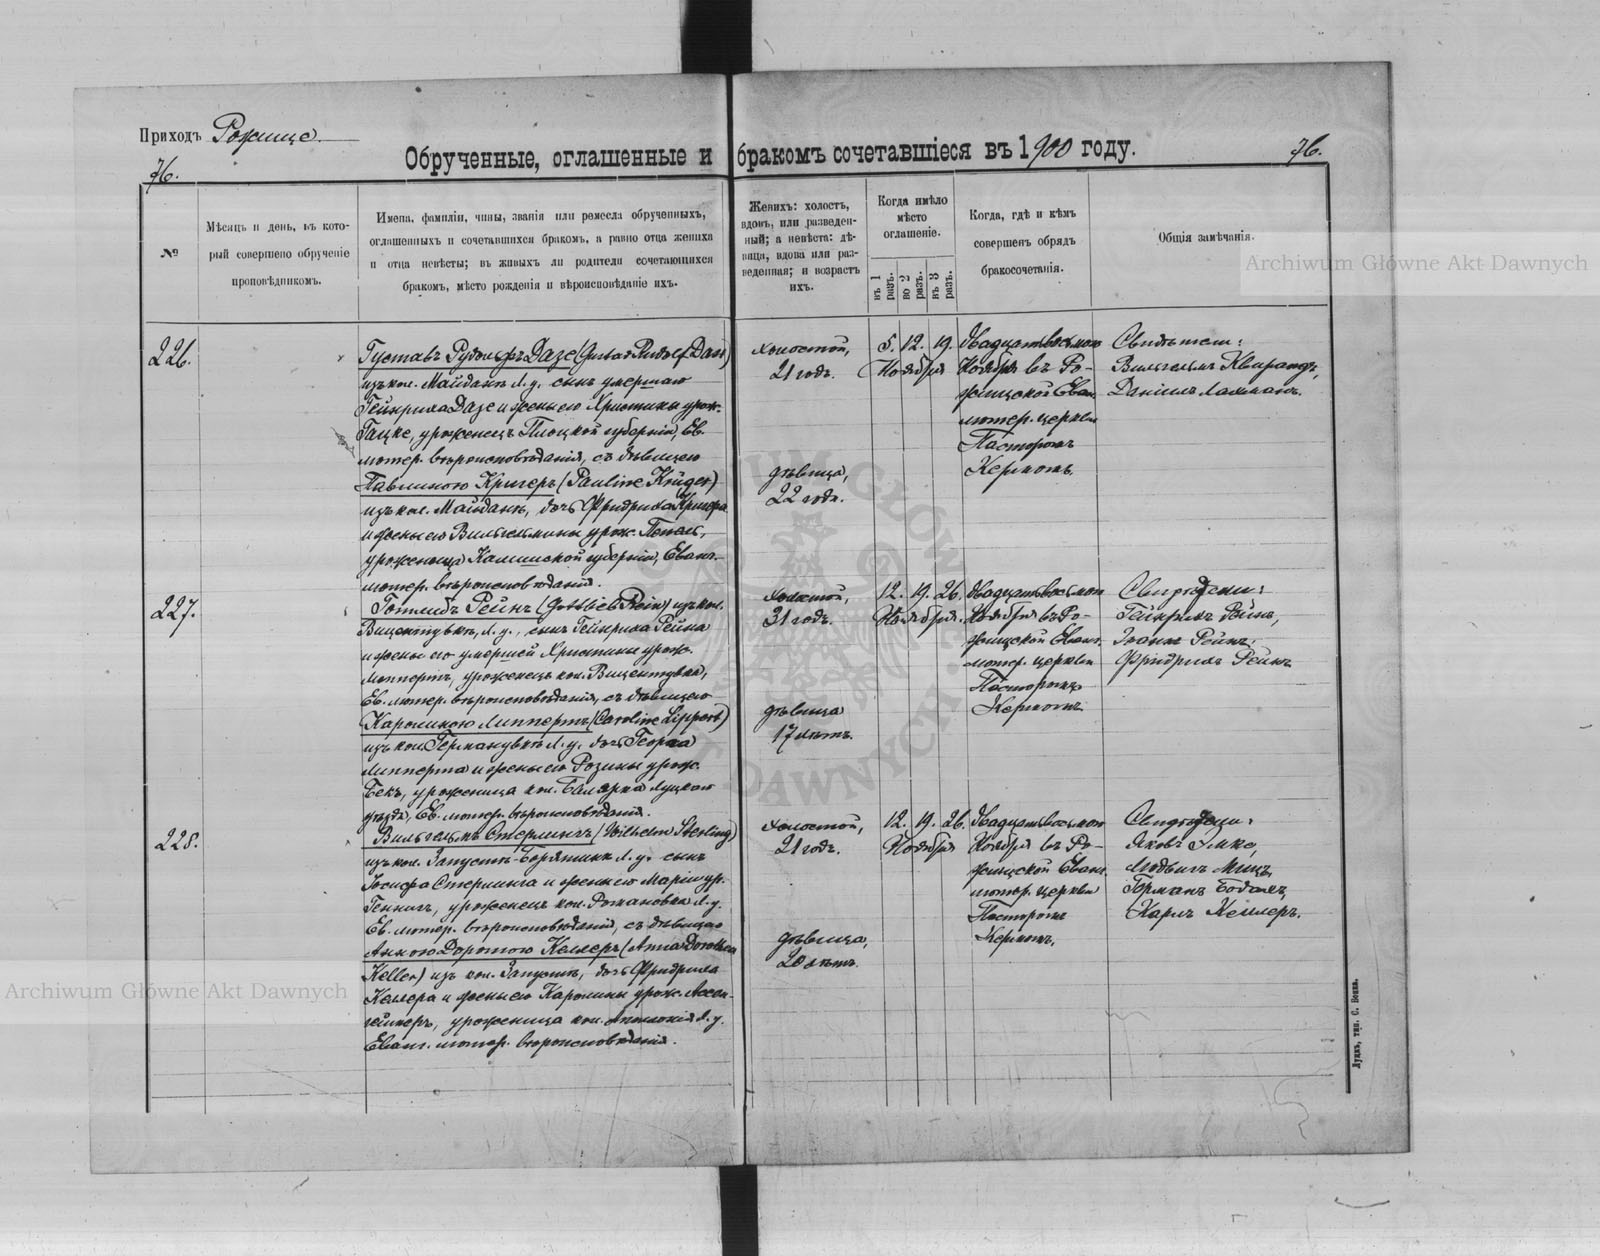 Приходъ Рожище.
76.
Обрученные, оглашенные и бракомъ сочетавшіеся въ 1900 году.
76.
№
Мѣсяцъ и день, въ кото-
рый совершено обрученіе
проповѣдникомъ.
Имена, фамиліи, чины, званія или ремесла обрученныхъ,
оглашенныхъ и сочетавшихся бракомъ, а равно отца жениха
и отца невѣсты; въ живыхъ ли родители сочетающихся
бракомъ, мѣсто рожденія и вѣроисповѣданіе ихъ.
Женихъ: холостъ,
вдовъ, или разведен-
ный; а невѣста: дѣ-
вица, вдова или раз-
веденная; и возрастъ
ихъ.
Когда имѣло
мѣсто
оглашеніе.
въ 1 разъ.
во 2 разъ.
въ 3 разъ.
Когда, гдѣ и кѣмъ
совершенъ обрядъ
бракосочетанія.
Общія замѣчанія.
Archiwum Główne Akt Dawnych
226.
Густавъ Рудольфъ Дазе (Gustav Rudolf Dase)
изъ кол. Майданъ Л. у. сынъ умершаго
Гейнриха Дазе и жены его Христины урож.
Гацке, уроженецъ Плоцкой губерніи, Ев.
лютер. вѣроисповѣданія, съ дѣвицею
Павлиною Кригеръ (Pauline Krüger)
изъ кол. Майданъ, дочь Фридриха Кригера
и жены его Вильгельмины урож.
уроженица Калишской губерніи, Еванг.
лютер. вѣроисповѣданія.
холостой,
21 годъ.
дѣвица,
22 года.
5. 12. 19.
Ноября
Двадцать восьмого
Ноября въ Ро-
жищской Еванг.
лютер. церкви
Пасторомъ
Керномъ.
Свидѣтели:
Вильгельмъ
Даніилъ Лахманъ.
227.
Готлибъ Рейнъ (Gottlieb Rein) изъ кол.
Вицентувка, Л. у., сынъ Гейнриха Рейна
и жены его умершей Христины урож.
Липпертъ, уроженецъ кол. Вицентувка,
Ев. лютер. вѣроисповѣданія, съ дѣвицею
Каролиною Липпертъ (Caroline Lippert)
изъ кол. Германувка Л. у. дочь Георга
Липперта и жены его Розины урож.
Бекъ, уроженица кол. Луцкаго
уѣзда, Ев. лютер. вѣроисповѣданія.
холостой,
31 годъ.
дѣвица
17 лѣтъ.
12. 19. 26.
Ноября.
Двадцать восьмого
Ноября въ Ро-
жищской Еванг.
лютер. церкви
Пасторомъ
Керномъ
Свидѣтели:
Гейнрихъ Рейнъ,
Іоганъ Рейнъ,
Фридрихъ Рейнъ
228.
Вильгельмъ Стерлингъ (Wilhelm Sterling)
изъ кол. Запустъ-Борятинъ Л. у. сынъ
Іосифа Стерлинга и жены его Маріи ур.
Геннигъ, уроженецъ кол. Рожановка Л. у.
Ев. лютер. вѣроисповѣданія, съ дѣвицею
Анною Доротою Келлеръ (Anna Dorothea
Keller) изъ кол. Запустъ, дочь Фридриха
Келлера и жены его Каролины урож.
уроженица кол. Л. у.
Еванг. лютер. вѣроисповѣданія.
холостой,
21 годъ.
дѣвица,
20 лѣтъ.
12. 19. 26.
Ноября
Двадцать восьмого
Ноября въ Ро-
жищской Еванг.
лютер. церкви
Пасторомъ
Керномъ.
Свидѣтели:
Яковъ
Людвигъ
Германъ
Карлъ Келлеръ.
Archiwum Główne Akt Dawnych
Луцкъ, тип. С. Бонка.